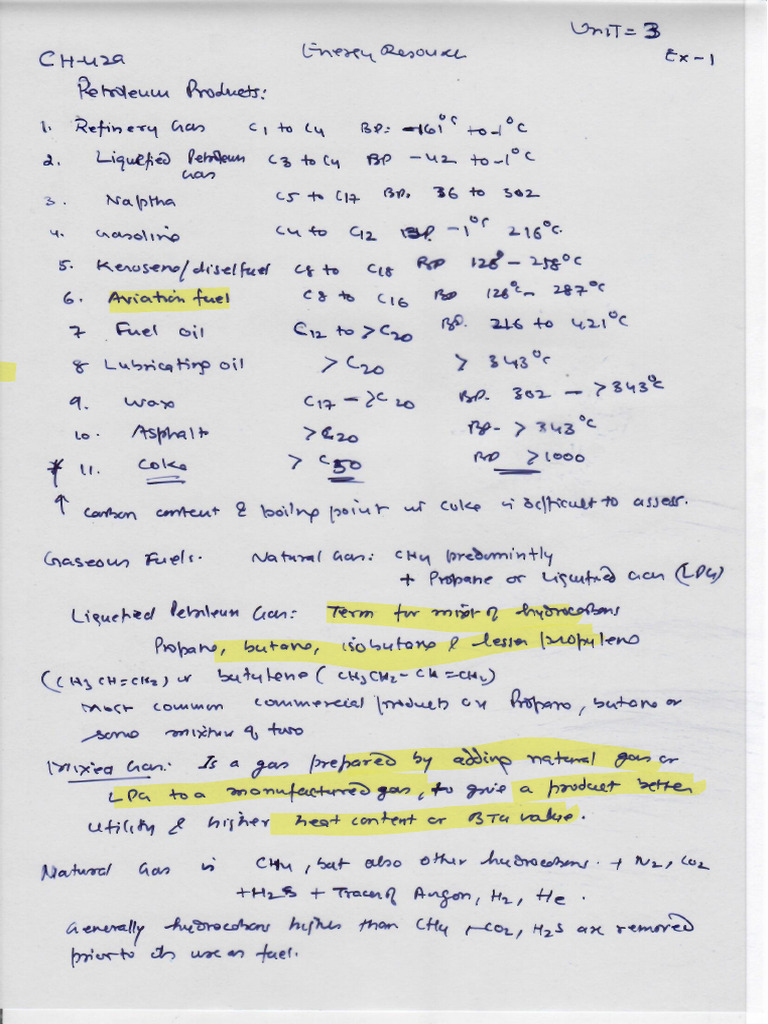 Unit = 3
CH-429 Energy Resource Ex-1
Petroleum Products:
1. Refinery Gas C1 to C4 BP: -161°C to -1°C
2. Liquefied Petroleum Gas C3 to C4 BP -42 to -1°C
3. Naptha C5 to C17 BP. 36 to 302
4. Gasoline C4 to C12 BP. -1°C 216°C.
5. Kerosene/diselfuel C8 to C18 BP 126° - 258°C
6. Aviation fuel C8 to C16 BP 126°C - 287°C
7 Fuel oil C12 to >C20 BP. 216 to 421°C
8 Lubricating oil >C20 > 343°C
9. Wax C17 - >C20 BP. 302 - >343°C
10. Asphalt >C20 BP- > 343°C
* 11. Coke > C50 BP >1000
↑ Carbon content & boiling point of coke is difficult to assess.
Gaseous Fuels. Natural Gas: CH4 predomintly
+ Propane or Liquefied Gas (LPG)
Liquefied Petroleum Gas: Term for mixt of hydrocarbons
Propane, butane, isobutane & lesser propylene
(CH3CH=CH2) or butylene (CH3CH2-CH=CH2)
Most common commercial products are Propane, butane or
some mixture of two
Mixed Gas: Is a gas prepared by adding natural gas or
LPG to a manufactured gas, to give a product better
utility & higher heat content or BTU value.
Natural Gas is CH4, but also other hydrocarbons. + N2, CO2
+H2S + Traces of Argon, H2, He.
Generally hydrocarbons higher than CH4, CO2, H2S are removed
prior to its use as fuel.